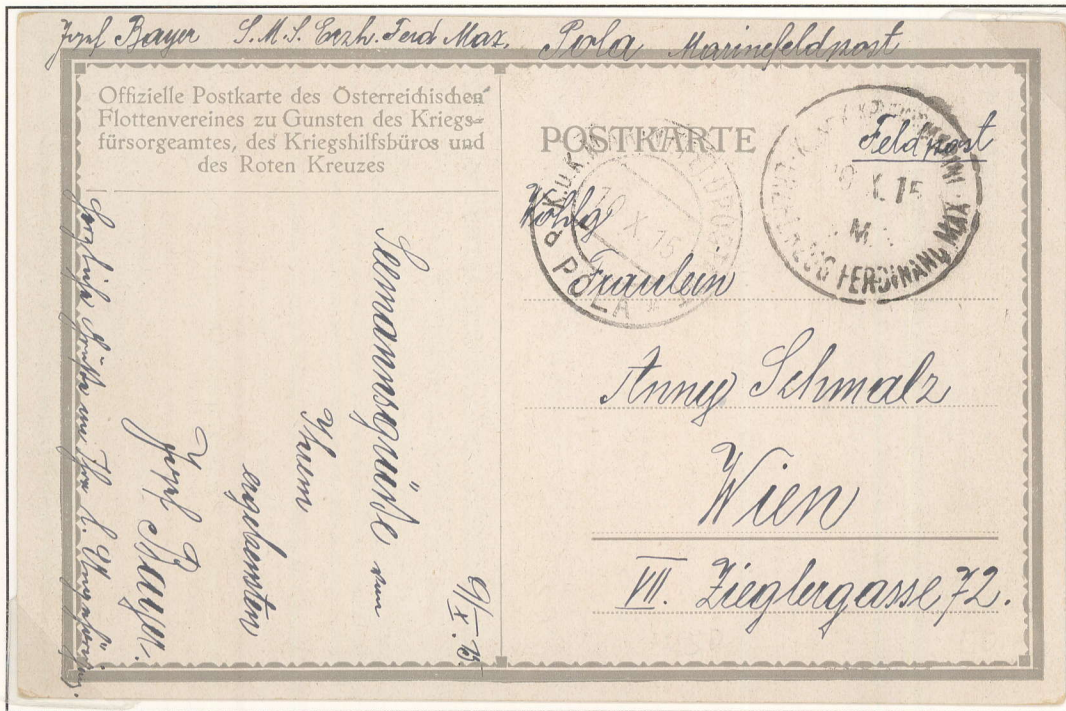 Josef Bayer S.M.S. Erzh. Ferd Max. Pola Marinefeldpost
Offizielle Postkarte des Österreichischen
Flottenvereines zu Gunsten des Kriegs=
fürsorgeamtes, des Kriegshilfsbüros und
des Roten Kreuzes
POSTKARTE
Feldpost
K.U.K.
10 X. 15
POLA
10 X. 15
M.
ERZHERZOG FERDINAND MAX
Wohlg
Fräulein
Anny Schmalz
Wien
VII. Zieglergasse 72.
9/X. 15.
Seemannsgrüße von
Ihrem
ergebensten
Josef Bayer.
Herzliche Grüße an Ihre l. Angehörigen.